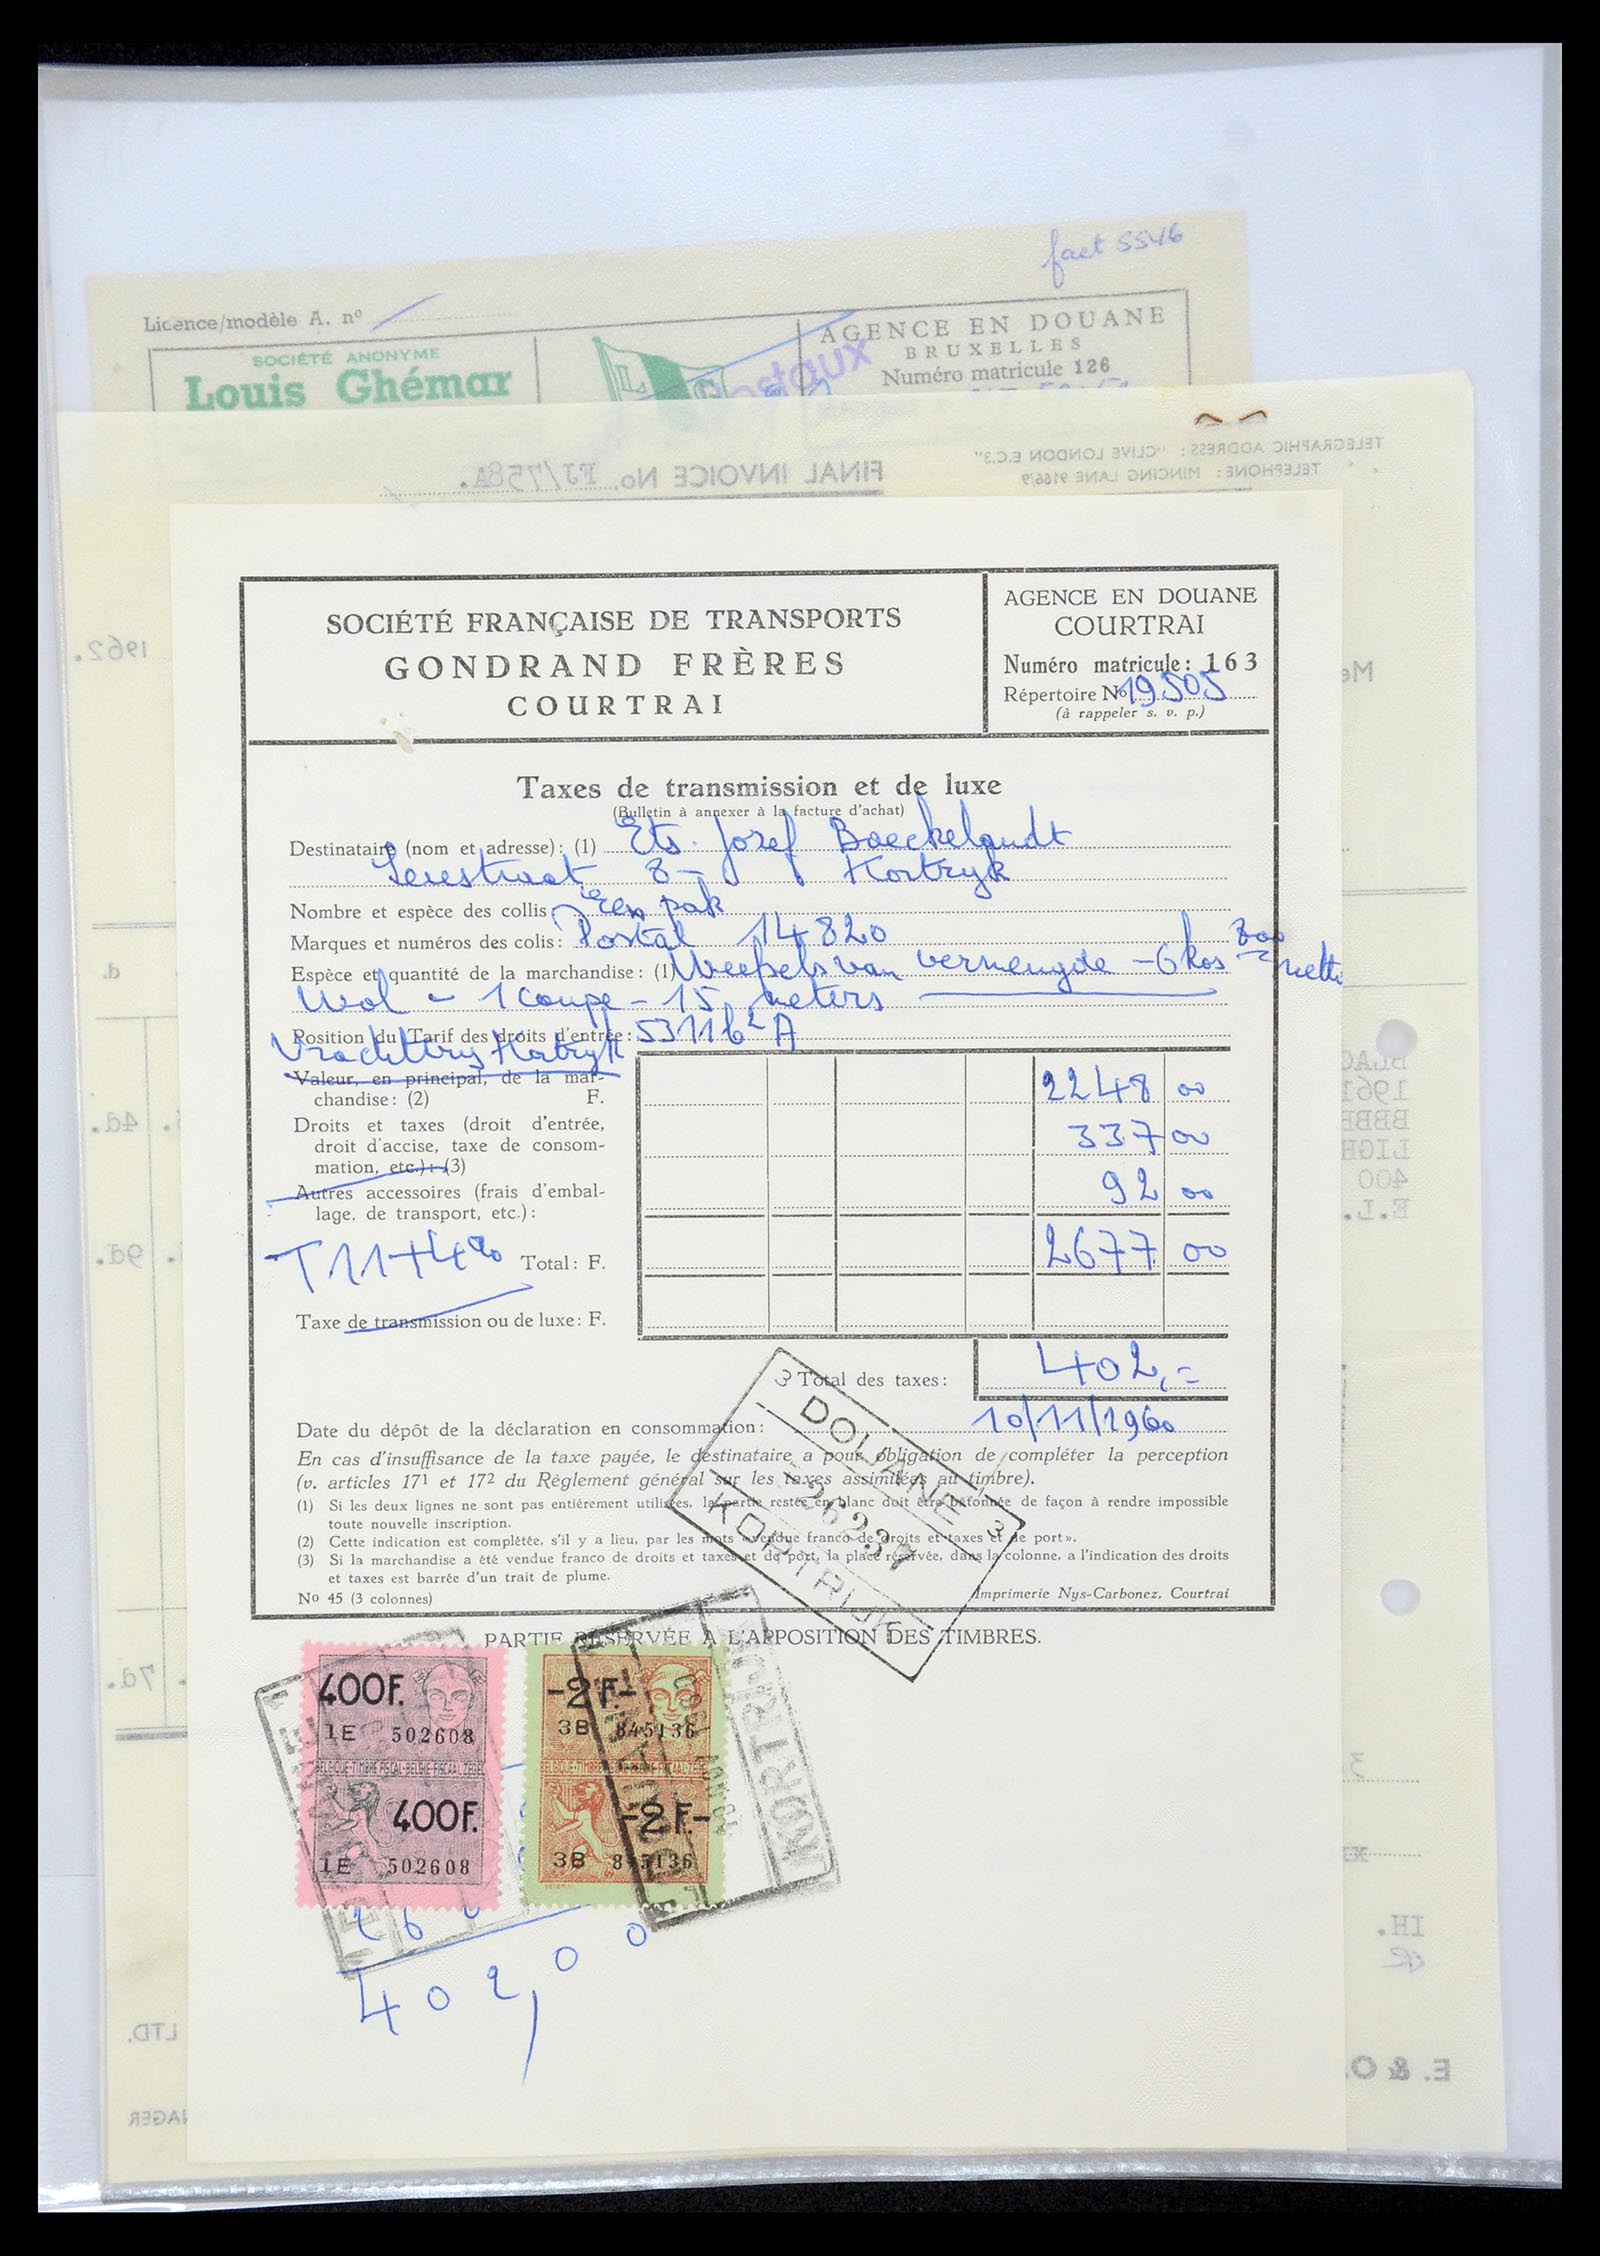 fact 5546
Licence/modèle A. nº
SOCIÉTÉ ANONYME
Louis Ghémar
L G
AGENCE EN DOUANE
BRUXELLES
Numéro matricule 126
Postaux
TELEGRAPHIC ADDRESS: "CLIVE LONDON E.C.3"
TELEPHONE: MINCING LANE 9166/9
FINAL INVOICE No. FJ/758A.
1962.
SOCIÉTÉ FRANÇAISE DE TRANSPORTS
GONDRAND FRÈRES
COURTRAI
AGENCE EN DOUANE
COURTRAI
Numéro matricule: 163
Répertoire No 19505
(à rappeler s. v. p.)
Taxes de transmission et de luxe
(Bulletin à annexer à la facture d'achat)
Destinataire (nom et adresse): (1) Ets. Jozef Baeckelandt
8 - Kortryk
Nombre et espèce des collis: Een pak
Marques et numéros des colis: Postal 14820
Espèce et quantité de la marchandise: (1) Weefsels van vermengde - 6 kos 300 netto
Wol - 1 coupe - 15 meters
Position du Tarif des droits d'entrée: 5311b2A
Kortryk
Valeur, en principal, de la mar-
chandise: (2) F. 2248 00
Droits et taxes (droit d'entrée,
droit d'accise, taxe de consom-
mation, etc.): (3) 337 00
Autres accessoires (frais d'embal-
lage, de transport, etc.): 92 00
T 11+4%
Total: F. 2677 00
Taxe de transmission ou de luxe: F.
Total des taxes: 402,=
Date du dépôt de la déclaration en consommation: 10/11/1960
En cas d'insuffisance de la taxe payée, le destinataire a pour obligation de compléter la perception
(v. articles 171 et 172 du Règlement général sur les taxes assimilées au timbre).
(1) Si les deux lignes ne sont pas entièrement utilisées, la partie restée en blanc doit être bâtonnée de façon à rendre impossible
toute nouvelle inscription.
(2) Cette indication est complétée, s'il y a lieu, par les mots «vendue franco de droits et taxes et de port».
(3) Si la marchandise a été vendue franco de droits et taxes et de port, la place réservée, dans la colonne, a l'indication des droits
et taxes est barrée d'un trait de plume.
No 45 (3 colonnes)
Imprimerie Nys-Carbonez, Courtrai
3 DOUANE 3
26237
KORTRIJK
PARTIE RÉSERVÉE A L'APPOSITION DES TIMBRES.
400F.
1E 502608
BELGIQUE-TIMBRE FISCAL-BELGIE-FISCAALZEGEL
400F.
1E 502608
-2F.-
3B 845136
-2F.-
3B 845136
KORTRIJK
402,00
4d.
9d.
7d.
d.
1961
400
E.L.
IH.
LTD.
E. & O.